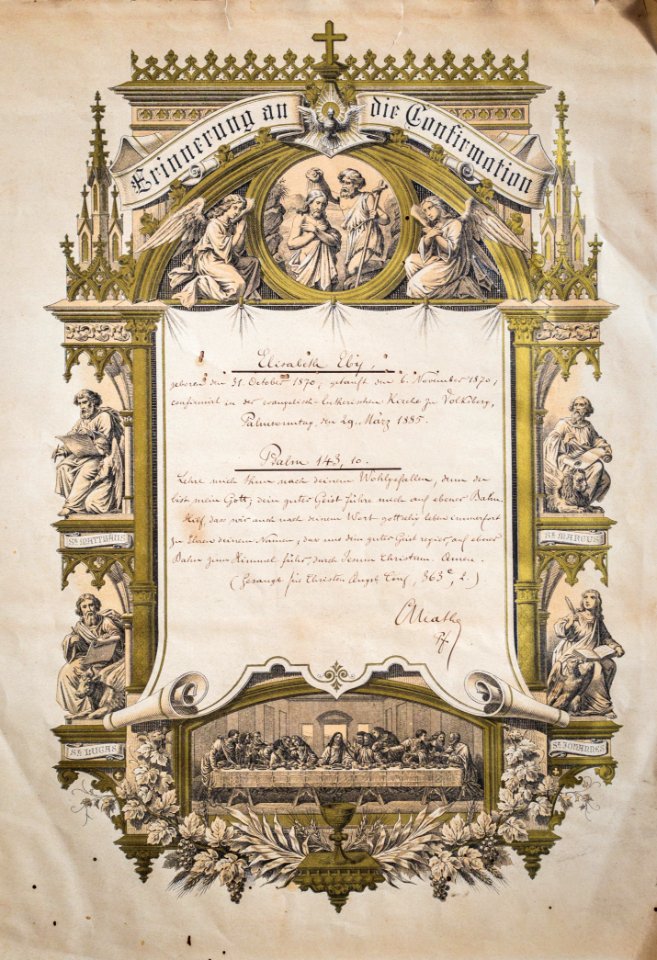 Erinnerung an die Confirmation
Elisabeth Eby,
geboren den 31. October 1870, getauft den 6. November 1870,
confirmirt in der evangelisch-lutherischen Kirche zu Volksberg,
Palmsonntag, den 29. März 1885.
Psalm 143, 10.
Lehre mich thun nach deinem Wohlgefallen, denn du
bist mein Gott; dein guter Geist führe mich auf ebener Bahn.
Hilf, dass wir auch nach deinem Wort gottselig leben immerfort
zu Ehren deinem Namen, das uns dein guter Geist regier, auf ebener
Bahn zum Himmel führ, durch Jesum Christum. Amen.
(Gesangb. für Christen Augsb. Conf., 363, 2.)
Pf.
ST. MATTHÄUS
ST. MARCUS
ST. LUCAS
ST. JOHANNES